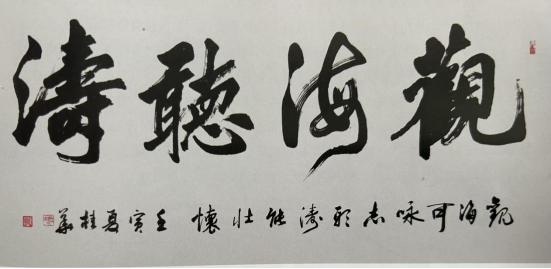 觀海聽濤
觀海可咏志聽濤能壯懷 壬寅夏桂華